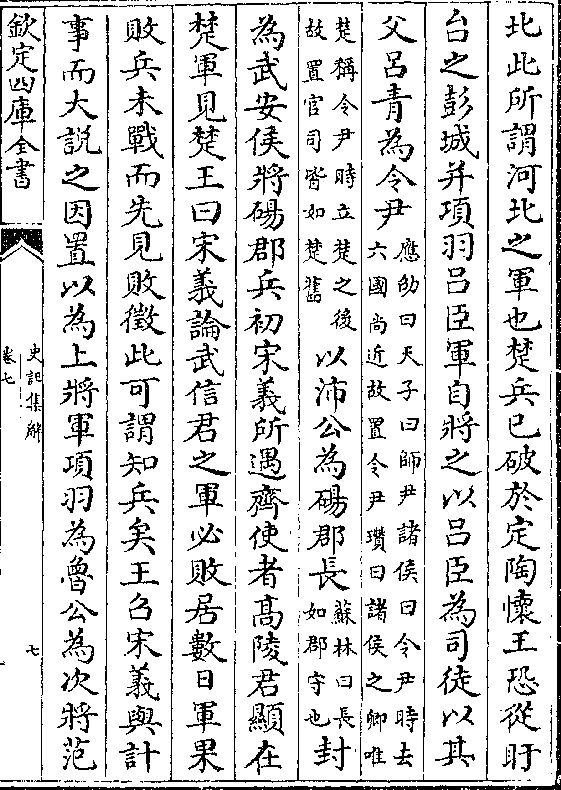 北此所謂河北之軍也楚兵已破於定陶懷王恐從盱
台之彭城并項羽呂臣軍自將之以呂臣為司徒以其
父呂青為令尹應劭曰天子曰師尹諸侯曰令尹時去六國尚近故置令尹瓚曰諸侯之卿唯
楚稱令尹時立楚之後故置官司皆如楚舊以沛公為碭郡長蘇林曰長如郡守也封
為武安侯將碭郡兵初宋義所遇齊使者髙陵君顯在
楚軍見楚王曰宋義論武信君之軍必敗居數日軍果
敗兵未戰而先見敗徵此可謂知兵矣王召宋義與計
事而大説之因置以為上將軍項羽為魯公為次將范
欽定四庫全書
史記集解
卷七
七